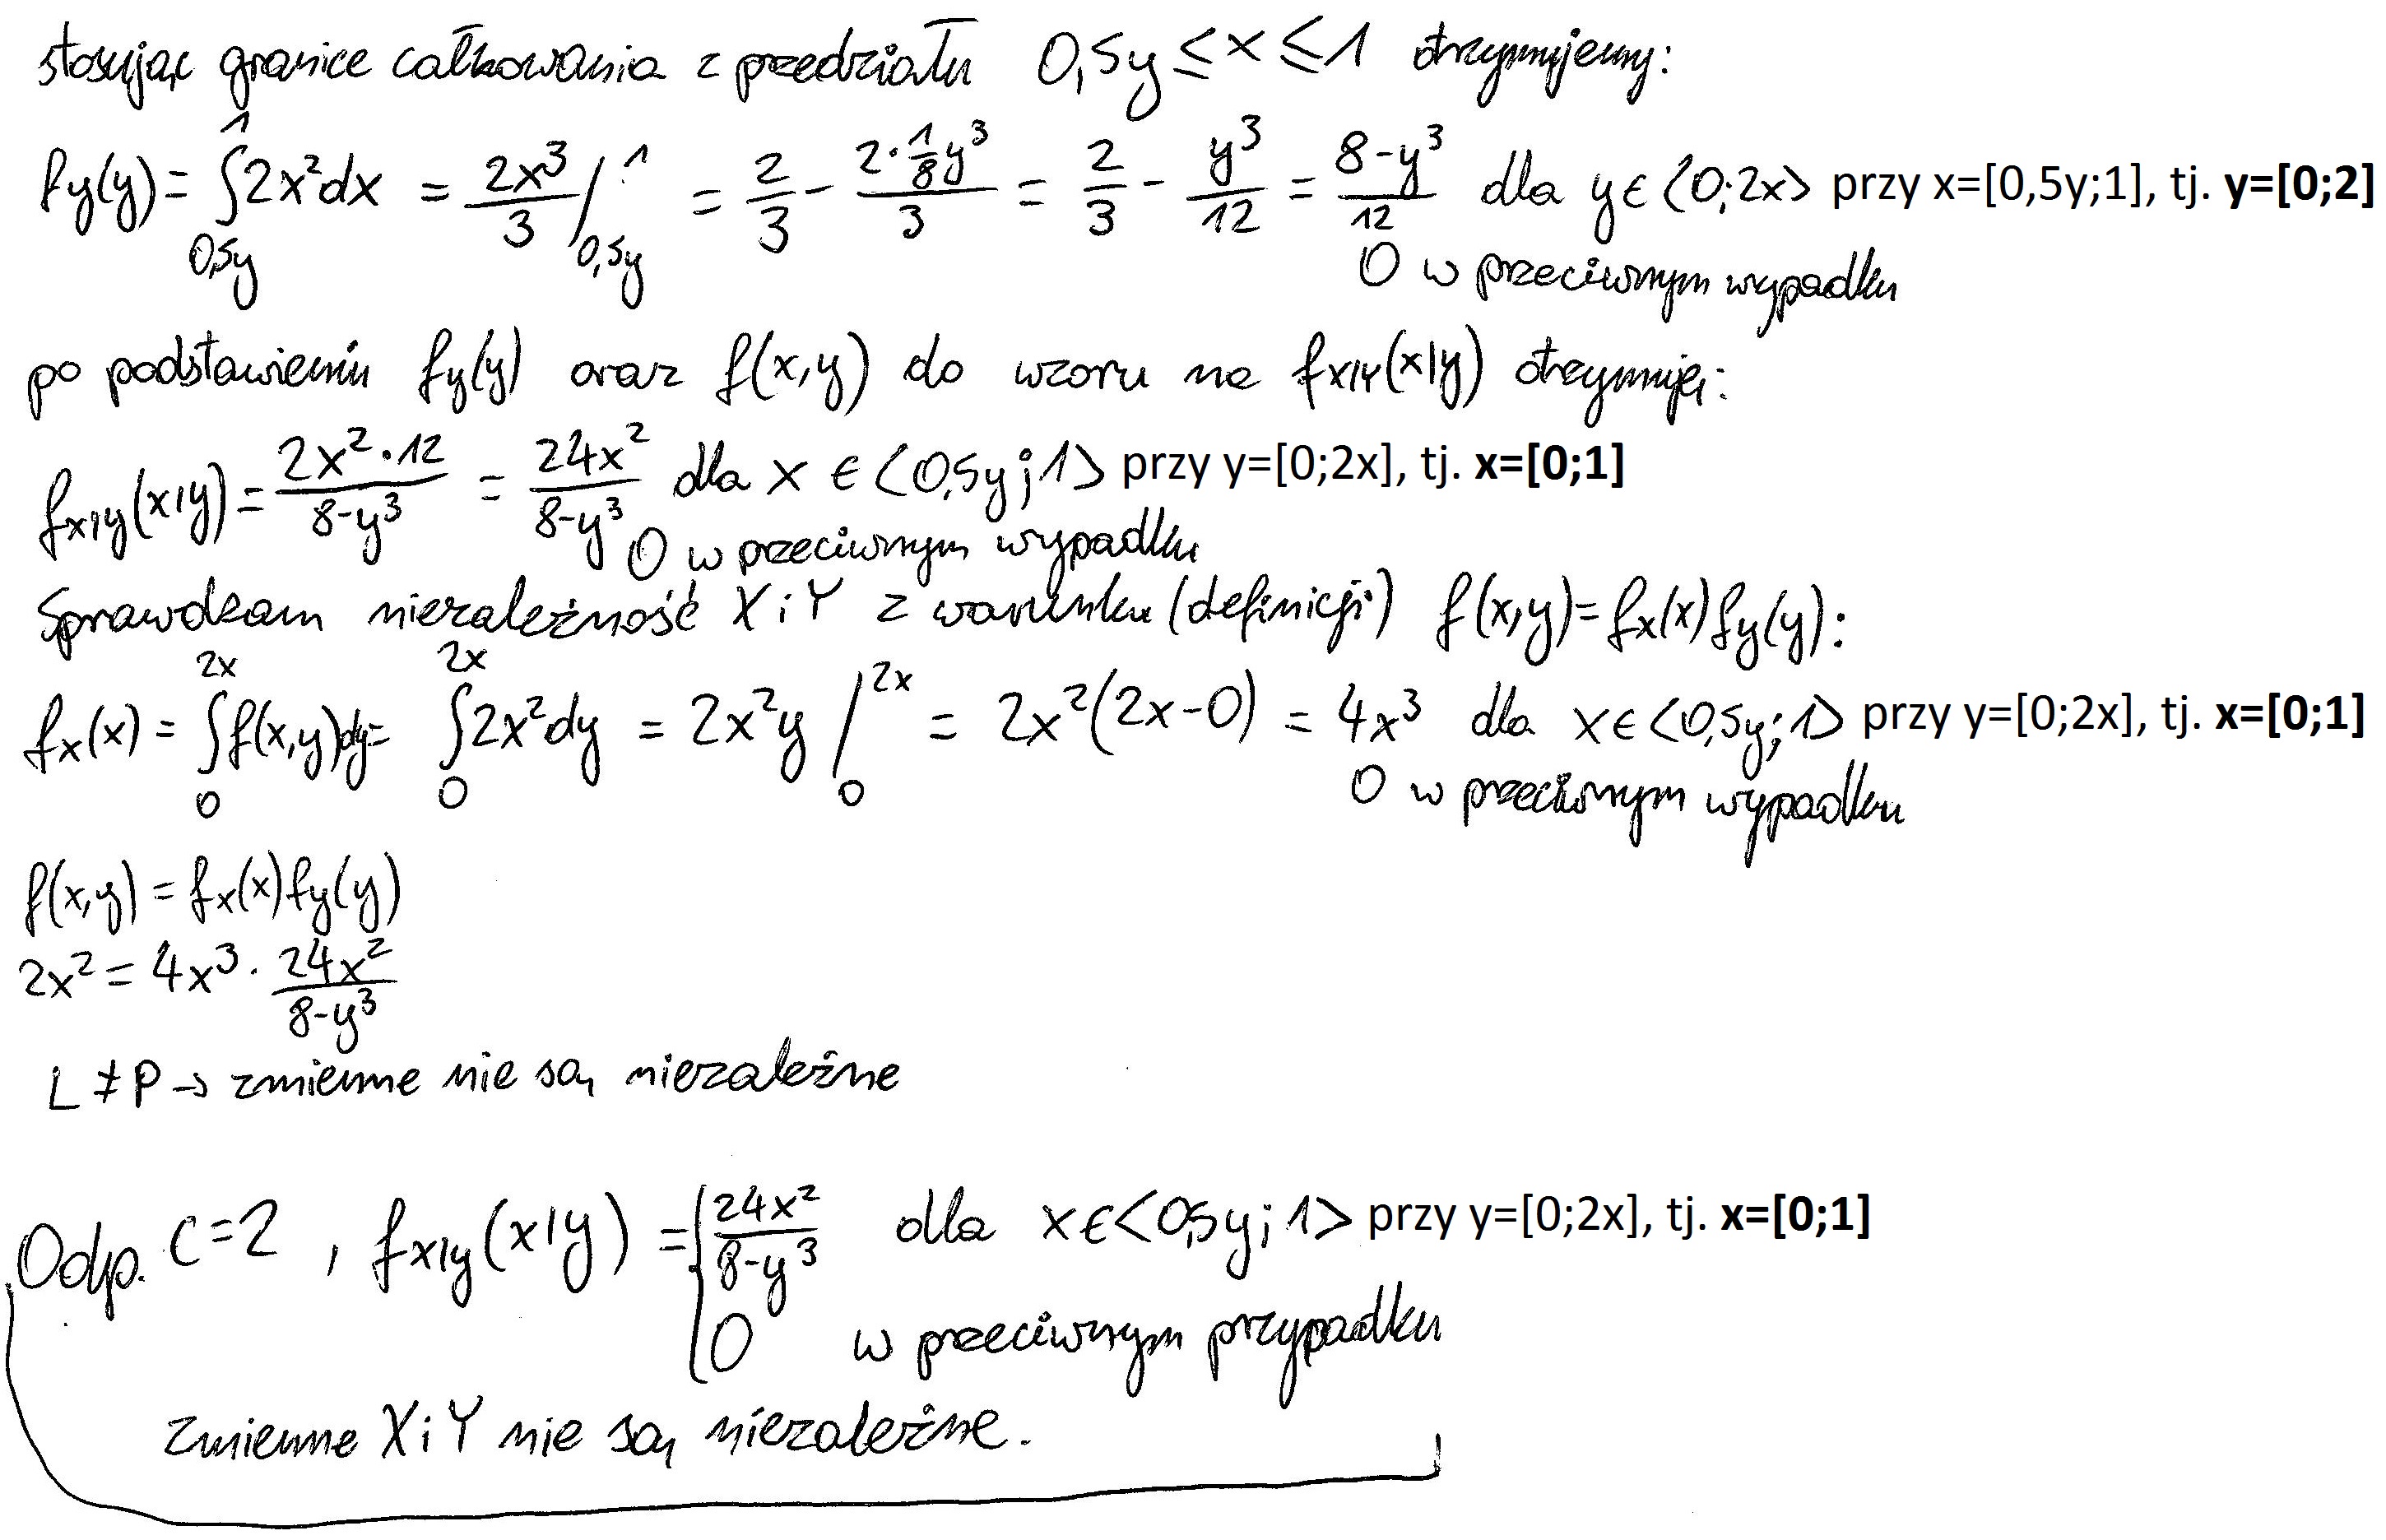 stosując granice całkowania z przedziału 0,5y ≤ x ≤ 1 otrzymujemy:
fy(y) = ∫_{0,5y}^{1} 2x²dx = 2x³/3 /_{0,5y}^{1} = 2/3 - (2·1/8y³)/3 = 2/3 - y³/12 = (8-y³)/12 dla y∈<0;2x> przy x=[0,5y;1], tj. y=[0;2]
0 w przeciwnym wypadku
po podstawieniu fy(y) oraz f(x,y) do wzoru na fx|Y(x|y) otrzymuję:
fx|y(x|y) = (2x²·12)/(8-y³) = 24x²/(8-y³) dla x ∈ <0,5y;1> przy y=[0;2x], tj. x=[0;1]
0 w przeciwnym wypadku
Sprawdzam niezależność X i Y z warunku (definicji) f(x,y)=fx(x)fy(y):
fx(x) = ∫_{0}^{2x} f(x,y)dy = ∫_{0}^{2x} 2x²dy = 2x²y /_{0}^{2x} = 2x²(2x-0) = 4x³ dla x∈<0,5y;1> przy y=[0;2x], tj. x=[0;1]
0 w przeciwnym wypadku
f(x,y) = fx(x)fy(y)
2x² = 4x³ · 24x²/(8-y³)
L ≠ P → zmienne nie są niezależne
Odp. C=2 , fx|y(x|y) = { 24x²/(8-y³) dla x∈<0,5y;1> przy y=[0;2x], tj. x=[0;1]
0 w przeciwnym przypadku
Zmienne X i Y nie są niezależne.